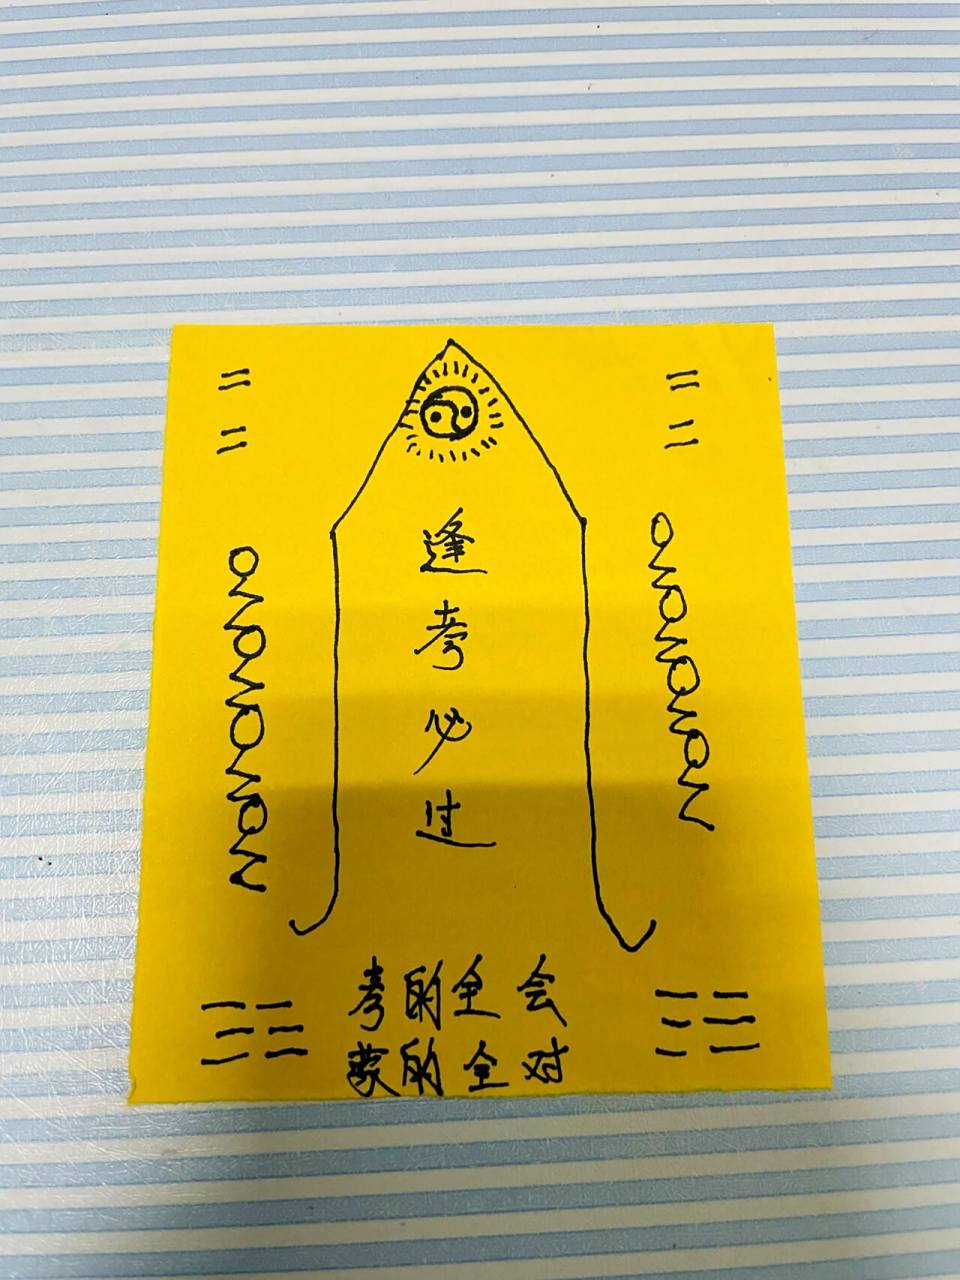 逢考必过
考的全会
蒙的全对